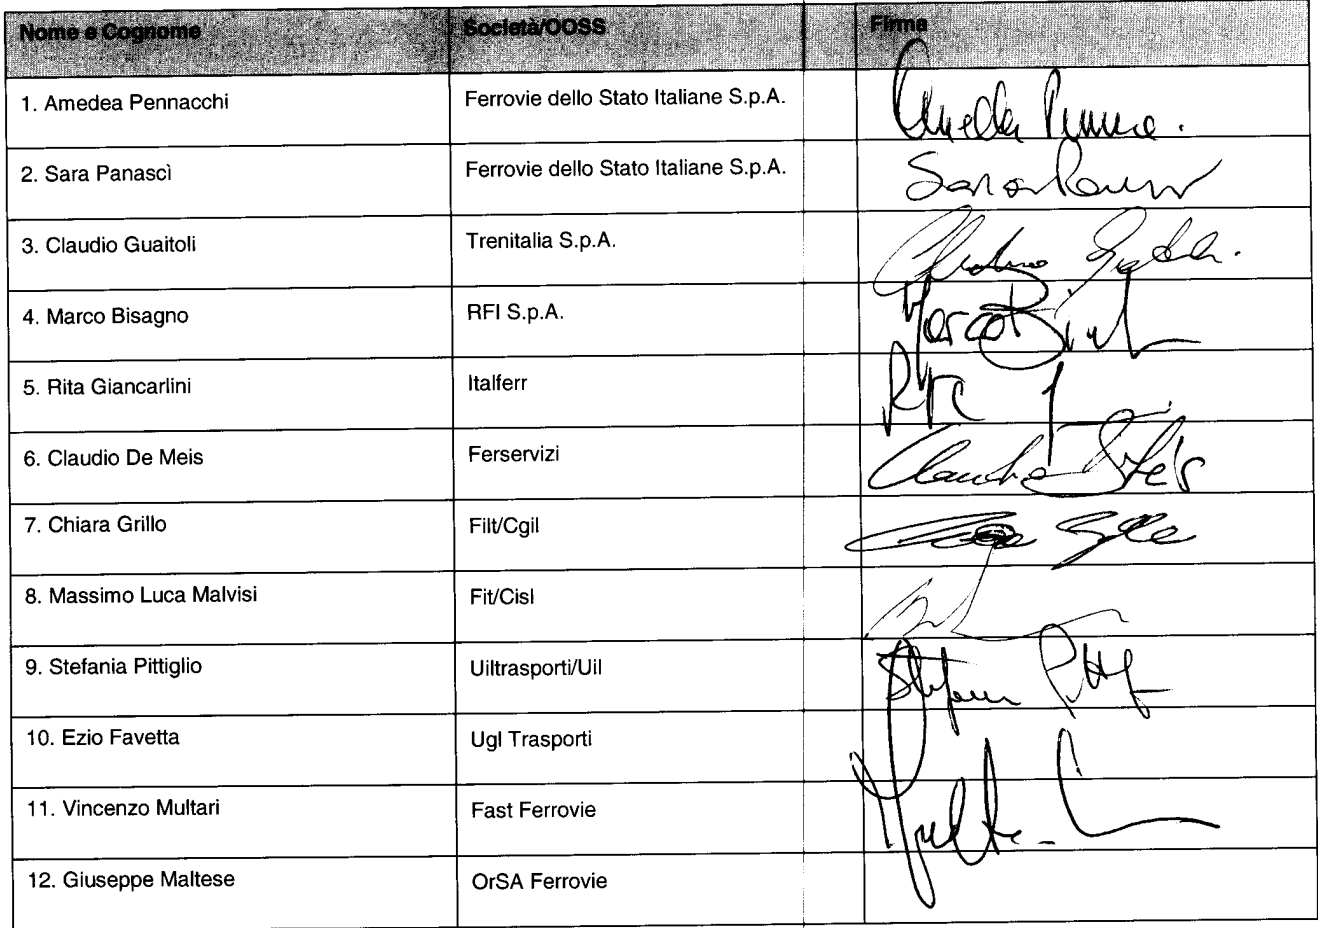 Nome e Cognome Società/OOSS Firma
1. Amedea Pennacchi Ferrovie dello Stato Italiane S.p.A.
2. Sara Panascì Ferrovie dello Stato Italiane S.p.A. Sara
3. Claudio Guaitoli Trenitalia S.p.A. Claudio
4. Marco Bisagno RFI S.p.A. Marco
5. Rita Giancarlini Italferr
6. Claudio De Meis Ferservizi Claudio
7. Chiara Grillo Filt/Cgil
8. Massimo Luca Malvisi Fit/Cisl
9. Stefania Pittiglio Uiltrasporti/Uil
10. Ezio Favetta Ugl Trasporti
11. Vincenzo Multari Fast Ferrovie
12. Giuseppe Maltese OrSA Ferrovie